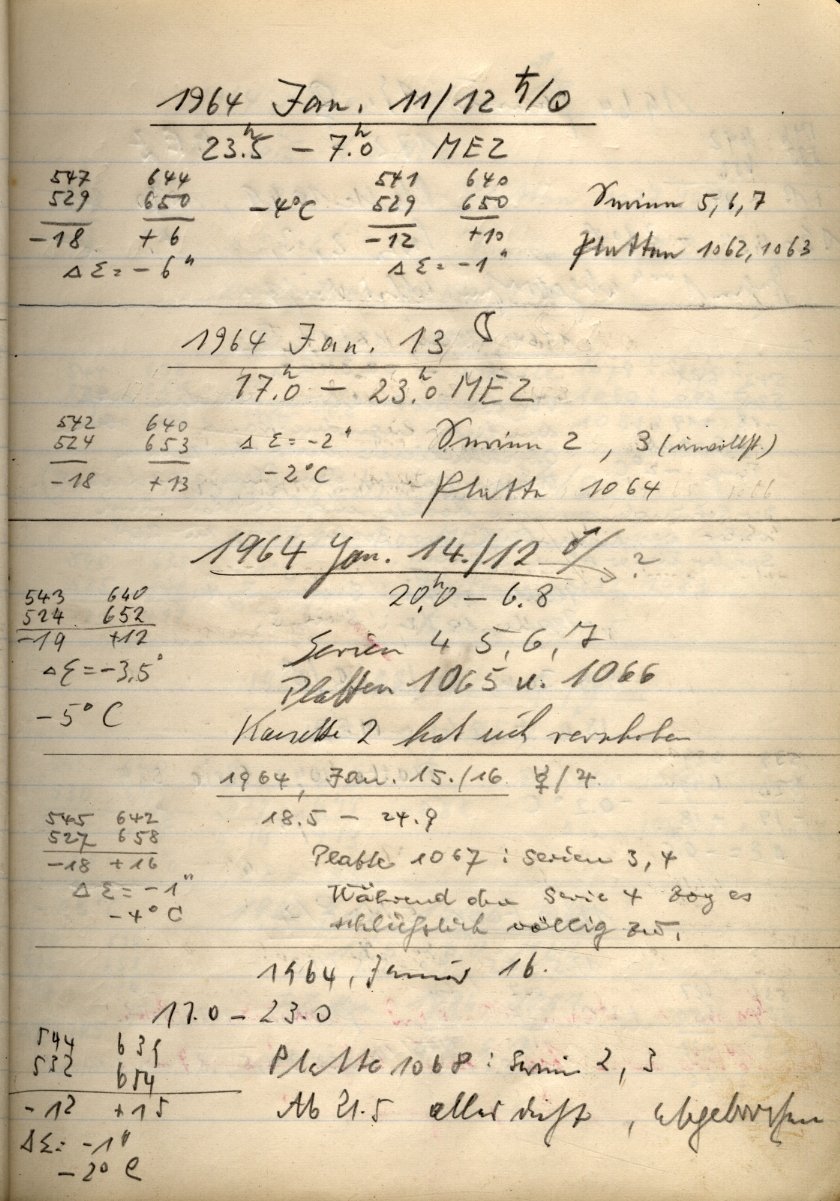 1964 Jan. 11/12 ♄/☉
23.ʰ5 – 7.ʰ0 MEZ
547 644 541 640
529 650 –4°C 529 650 Serien 5, 6, 7
–18 +6 –12 +10
ΔΣ = –6" ΔΣ = –1" Platten 1062, 1063
1964 Jan. 13 ☾
17.ʰ0 – 23.ʰ0 MEZ
542 640
524 653 ΔΣ = –2" Serien 2, 3 (unvollst.)
–18 +13 –2°C Platte 1064
1964 Jan. 14./12 ♂/ ?
20.ʰ0 – 6.8
543 640
524 652
–19 +12 Serien 4 5, 6, 7
ΔΣ = –3,5" Platten 1065 u. 1066
–5°C Kassette 2 hat sich verschoben
1964, Jan. 15./16 ☿/♃
545 642 18.5 – 24.9
527 658
–18 +16 Platte 1067 : Serien 3, 4
ΔΣ = –1" Während der Serie 4 zog es
–4°C schließlich völlig zu.
1964, Januar 16.
17.0 – 23.0
544 639
532 654 Platte 1068 : Serien 2, 3
–12 +15 Ab 21.5 alles dicht, abgebrochen
ΔΣ = –1"
–2°C